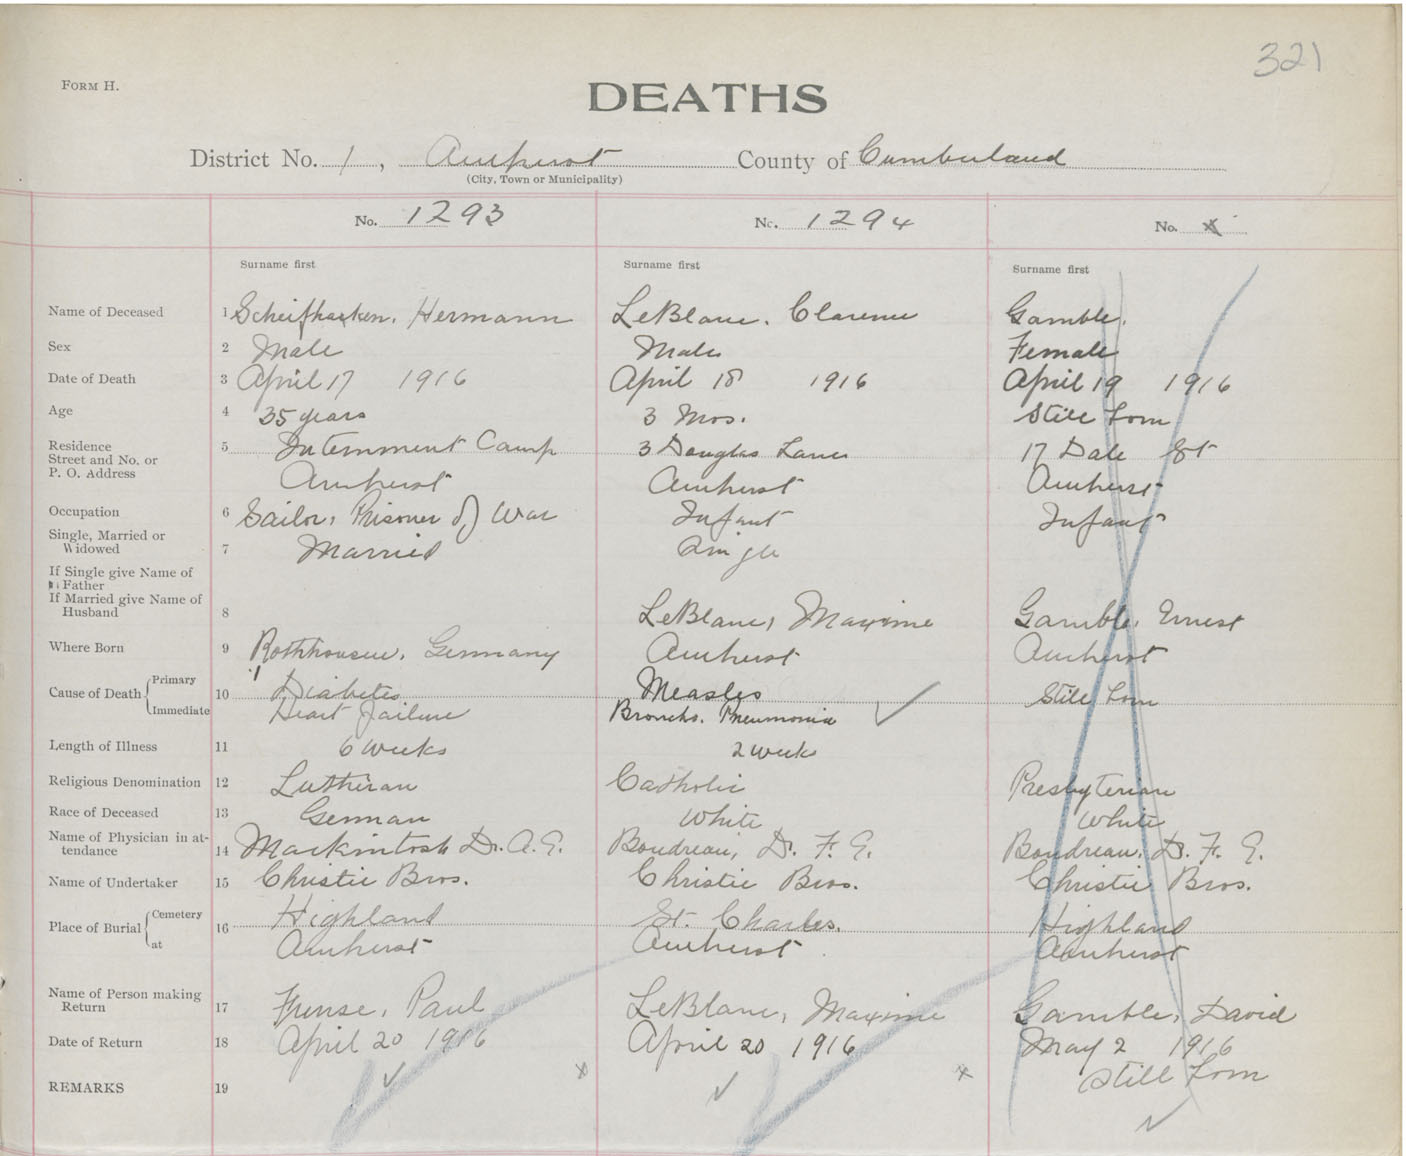 321
FORM H.
DEATHS
District No. 1, Amherst County of Cumberland
(City, Town or Municipality)
No. 1293 No. 1294 No. x
Surname first Surname first Surname first
Name of Deceased 1 Hermann LeBlanc, Clarence Gamble.
Sex 2 Male Male Female
Date of Death 3 April 17 1916 April 18 1916 April 19 1916
Age 4 35 years 3 Mos. Still born
Residence 5 Internment Camp 3 Douglas Lane 17 Dale St
Street and No. or
P. O. Address Amherst Amherst Amherst
Occupation 6 Sailor, Prisoner of War Infant Infant
Single, Married or
Widowed 7 Married Single
If Single give Name of
Father
If Married give Name of
Husband 8 LeBlanc, Maxime Gamble, Ernest
Where Born 9 Germany Amherst Amherst
Cause of Death { Primary 10 Diabetes Measles Still born
Immediate Heart Failure Broncho. Pneumonia
Length of Illness 11 6 weeks 2 weeks
Religious Denomination 12 Lutheran Catholic Presbyterian
Race of Deceased 13 German White White
Name of Physician in at-
tendance 14 Mackintosh Dr. A. E. Boudreau, Dr. F. E. Boudreau, Dr. F. E.
Name of Undertaker 15 Christie Bros. Christie Bros. Christie Bros.
Place of Burial { Cemetery 16 Highland St. Charles. Highland
at Amherst Amherst Amherst
Name of Person making
Return 17 Paul LeBlanc, Maxime Gamble, David
Date of Return 18 April 20 1916 April 20 1916 May 2 1916
REMARKS 19 Still born